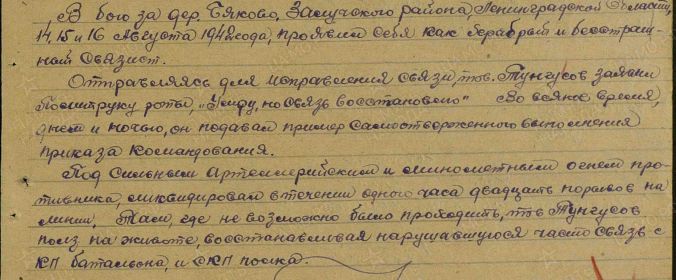 В бою за дер. Бяково, Залучского района, Ленинградской области,
14, 15 и 16 августа 1942 года, проявил себя как храбрый и бесстраш-
ный связист.
Отправляясь для исправления связи, тов. Тунгусов заявил
Политруку роты, "Умру, но связь восстановлю" Во всякое время,
днем и ночью, он подавал пример самоотверженного выполнения
приказа командования.
Под сильным Артеллерийским и минометным огнем про-
тивника, ликвидировал в течении одного часа двадцать порывов на
линии, Там, где не возможно было проходить, тов Тунгусов
полз на животе, восстанавливая нарушавшуюся часто связь с
КП батальона, и с КП полка.